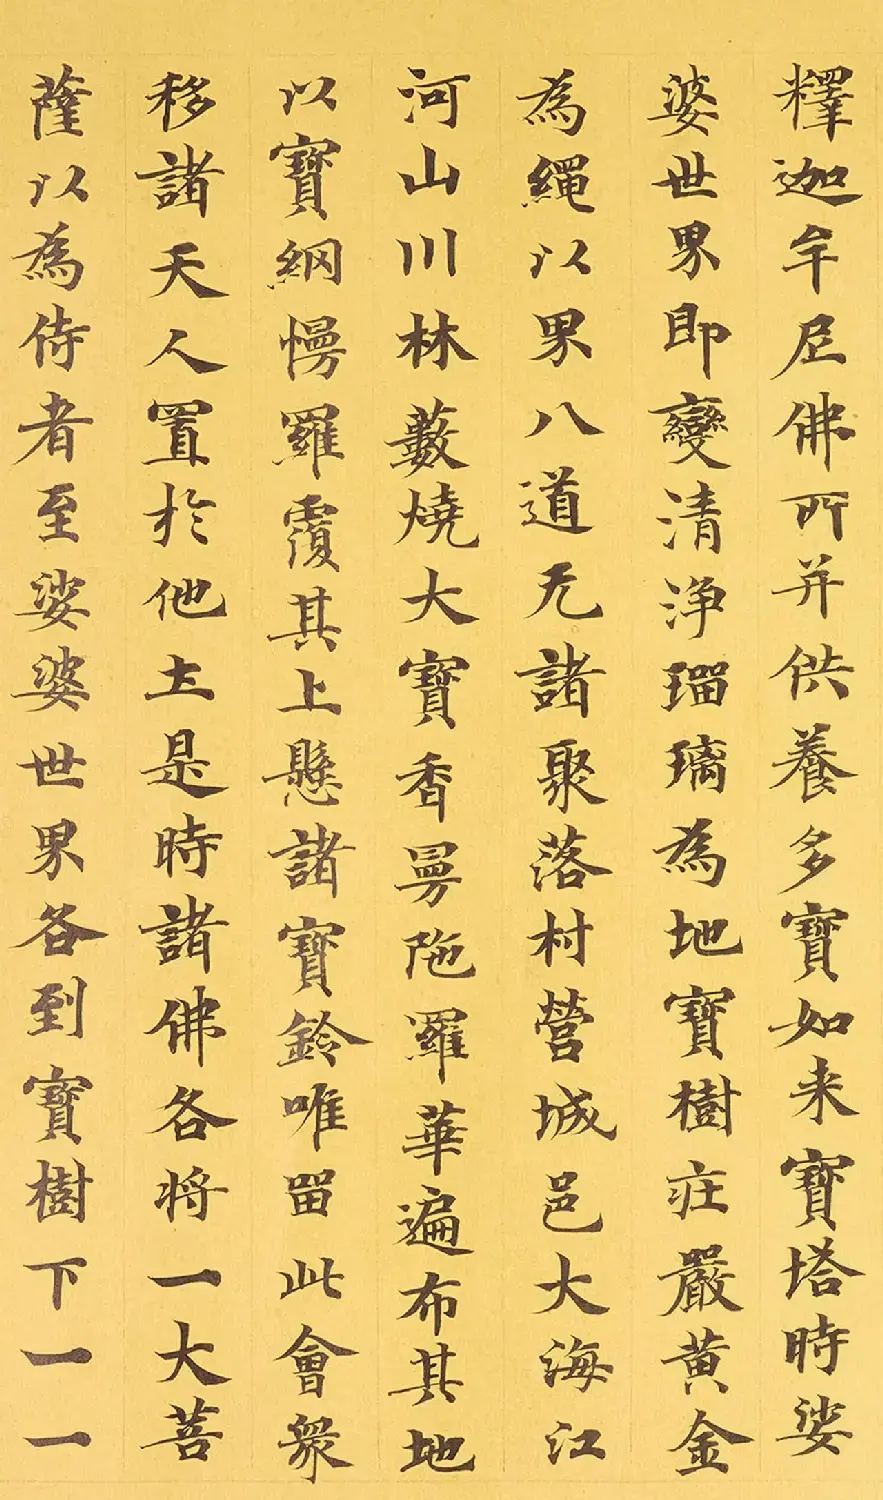 釋迦牟尼佛所并供養多寶如来寶塔時娑
婆世界即變清淨瑠璃為地寶樹莊嚴黄金
為繩以界八道无諸聚落村營城邑大海江
河山川林藪燒大寶香曼陁羅華遍布其地
以寶網幔羅覆其上懸諸寶鈴唯留此會衆
移諸天人置於他土是時諸佛各將一大菩
薩以為侍者至娑婆世界各到寶樹下一一